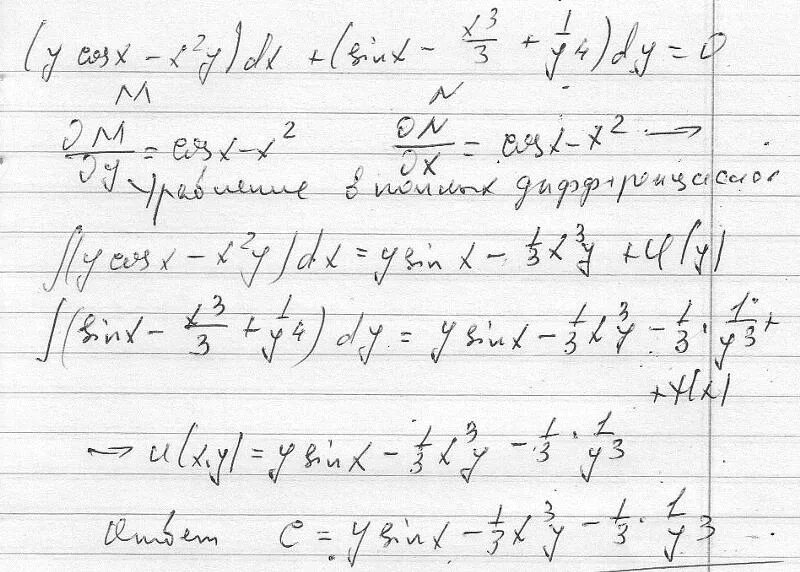 (y cos x − x²y) dx + (sin x − x³/3 + 1/y⁴) dy = 0
M N
∂M/∂y = cos x − x² ∂N/∂x = cos x − x² →
Уравнение в полных дифференциалах
∫(y cos x − x²y) dx = y sin x − 1/3 x³y + φ(y)
∫(sin x − x³/3 + 1/y⁴) dy = y sin x − 1/3 x³y − 1/3 · 1/y³ +
+ψ(x)
→ u(x,y) = y sin x − 1/3 x³y − 1/3 · 1/y³
Ответ C = y sin x − 1/3 x³y − 1/3 · 1/y³